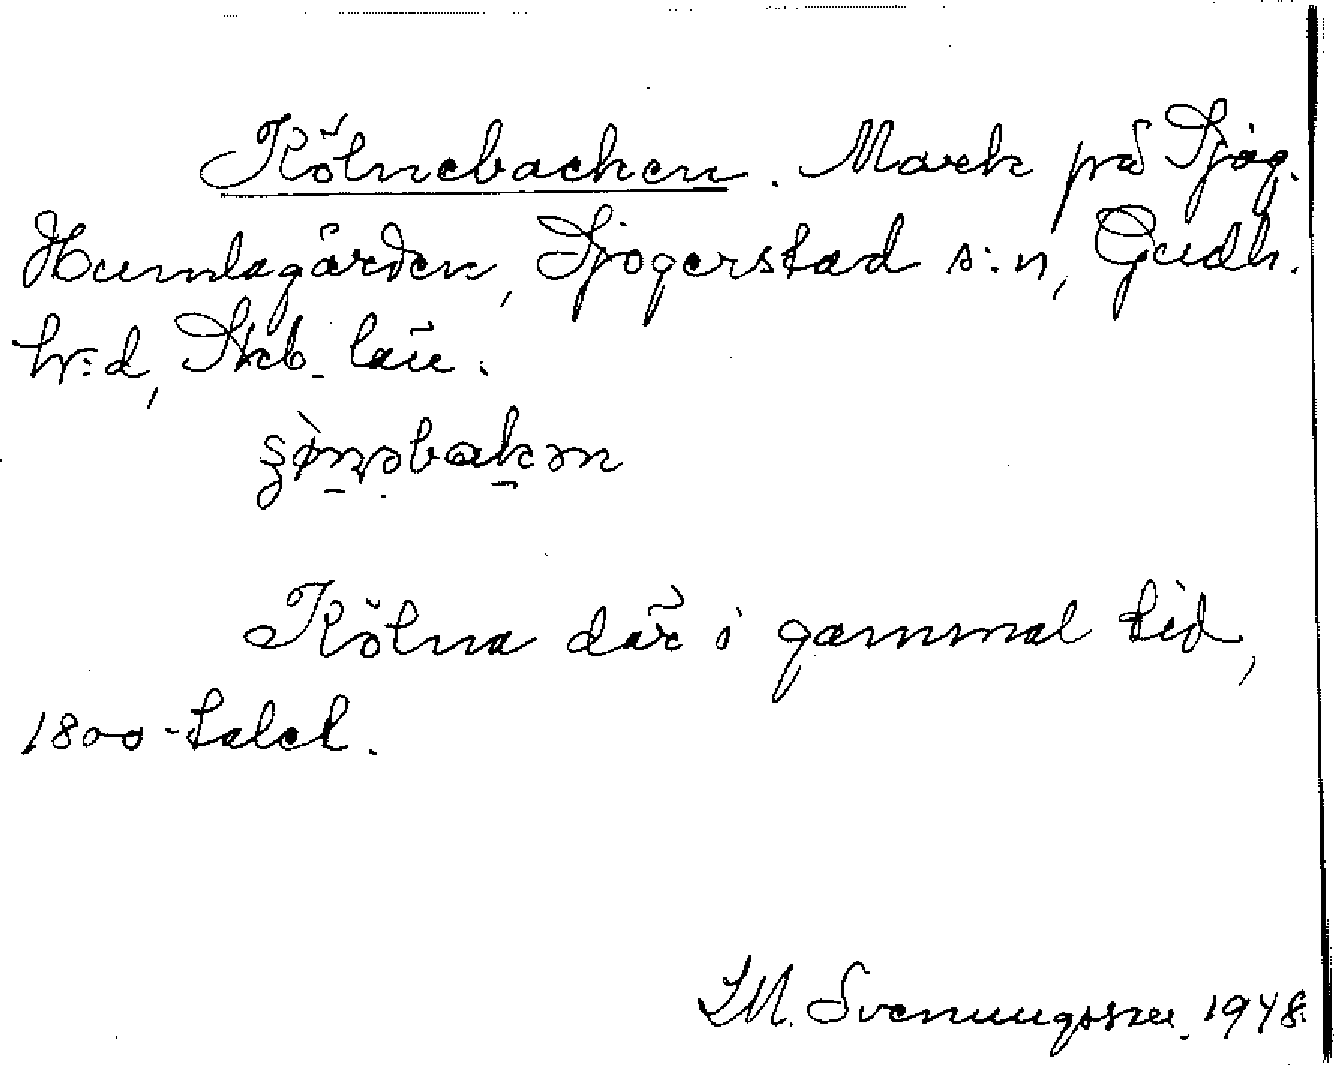 Kölnebacken. Mark på Sjog.
Humlagården, Sjogerstad s:n, Gudh.
hr:d, Skb. län.
Kölna där i gammal tid,
1800-talet.
I.M. Svenungsson. 1948.